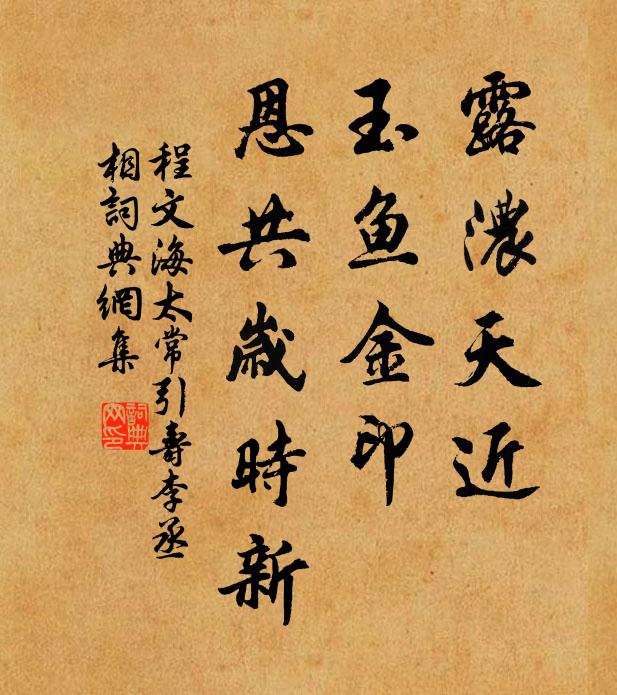 露濃天近
玉魚金印
恩共歲時新
程文海太常引壽李丞
相詞典網集
詞典网印